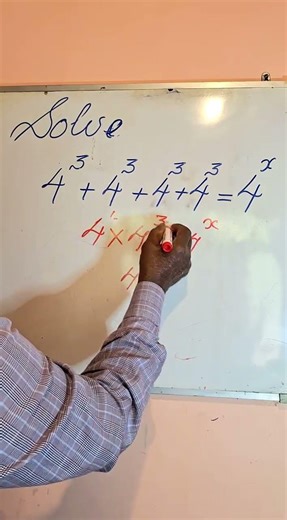 Solve
4³ + 4³ + 4³ + 4³ = 4ˣ
4¹ × 4³ 4ˣ
4